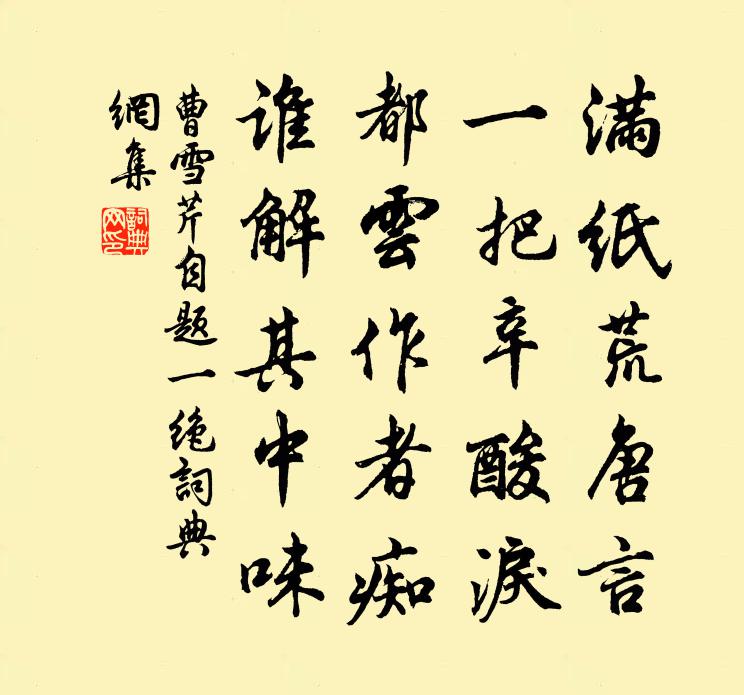 满纸荒唐言
一把辛酸淚
都雲作者痴
谁解其中味
曹雪芹自题一绝詞典
網集
詞典网印